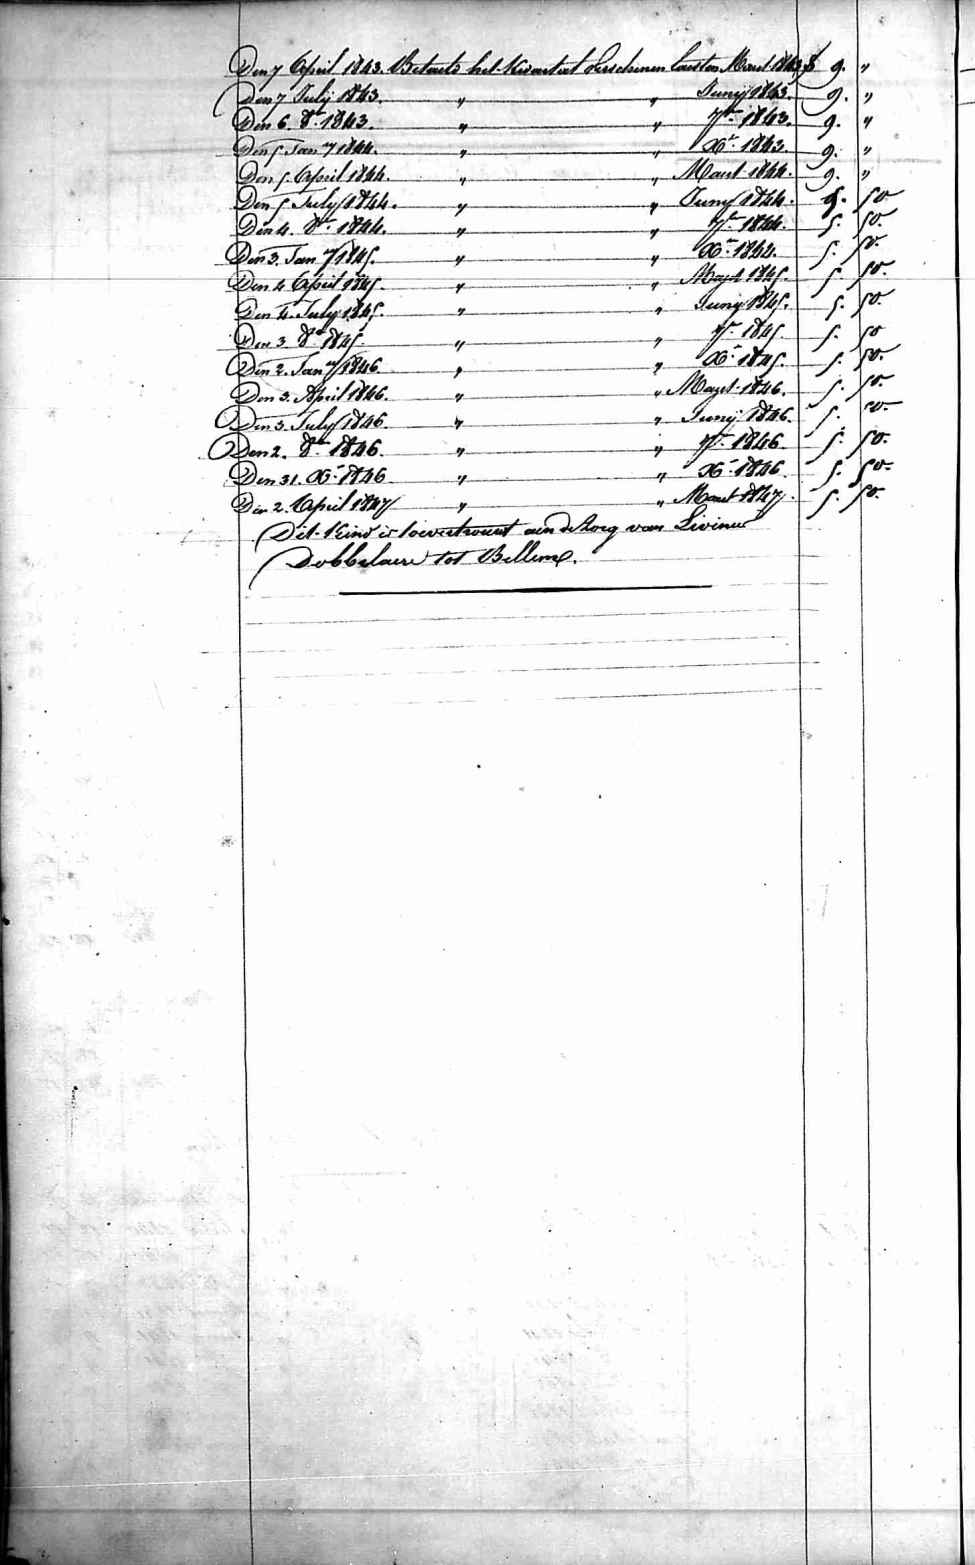 Den 7 April 1843. Betaelt het Kwartael verschenen lautsten Maert 1843 9. "
Den 7 July 1843. " " Juny 1843. 9. "
Den 6. 8br 1843. " " 7br 1843. 9. "
Den 5 Jany 1844. " " Xbr 1843. 9. "
Den 5 April 1844. " " Maert 1844. 9. "
Den 5 July 1844. " " Juny 1844. 5. 50
Den 4. 8br 1844. " " 7br 1844. 5. 50.
Den 3. Jany 1845. " " Xbr 1844. 5. 50.
Den 4 April 1845. " " Maert 1845. 5. 50.
Den 4 July 1845. " " Juny 1845. 5. 50.
Den 3 8br 1845. " " 7br 1845. 5. 50
Den 2. Jany 1846. " " Xbr 1845. 5. 50.
Den 3. April 1846. " " Maert 1846. 5. 50.
Den 3. July 1846 " " Juny 1846. 5. 50.
Den 2. 8br 1846. " " 7br 1846. 5. 50.
Den 31. Xbr 1846 " " Xbr 1846. 5. 50.
Den 2. April 1847 " " Maert 1847. 5. 50.
Dit Kind is toevertrouwt aen de zorg van Livinus
Dobbelaere tot Bellem.